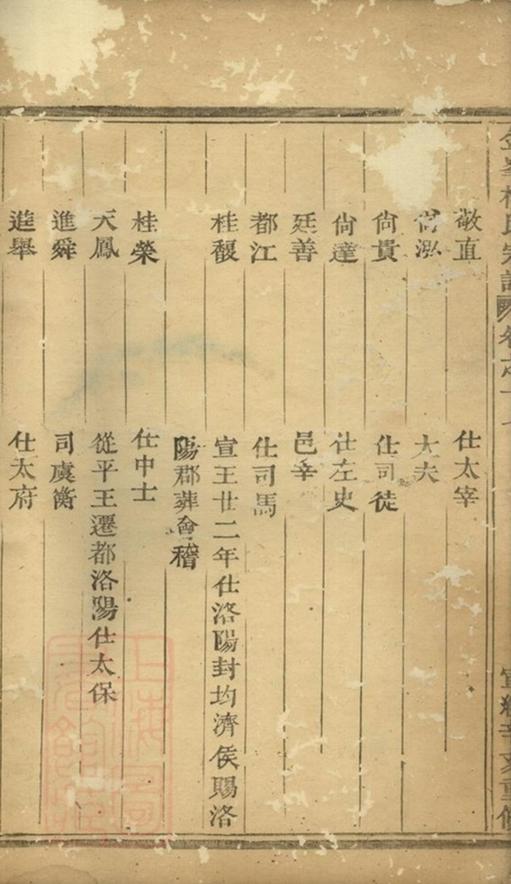 敬直 仕太宰
尚泓 大夫
尚貴 仕司徒
尚達 仕左史
廷善 邑宰
都江 仕司馬
桂馥 宣王廿二年仕洛陽封均濟侯賜洛
陽郡葬會稽
桂榮 仕中士
天鳳 從平王遷都洛陽仕太保
進舜 司虞衡
進舉 仕太府